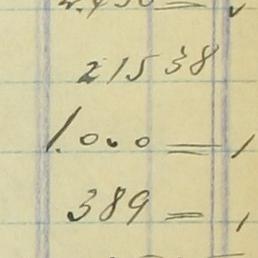 21538
1.000 =
389 =